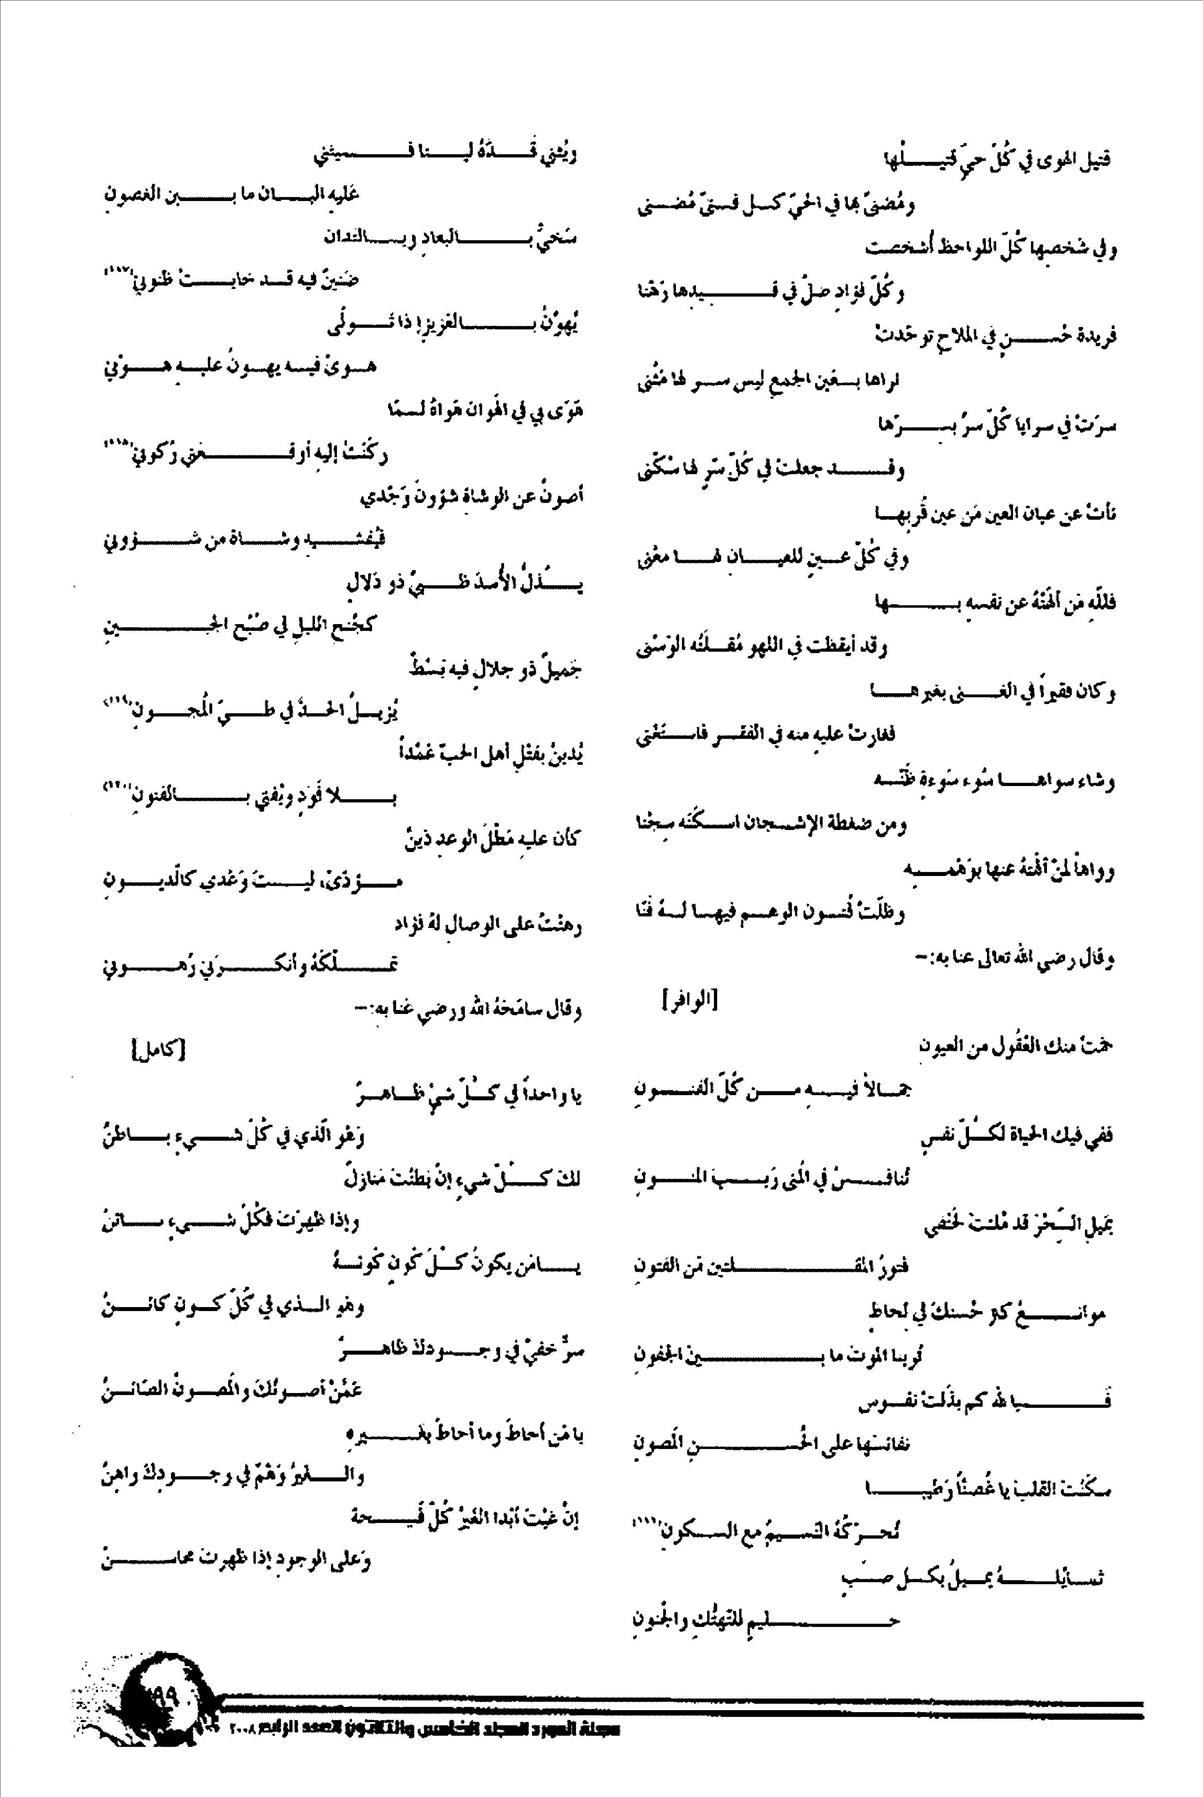 قتيل الهوى في كُلّ حيّ قتيلُها
ومُضنىّ بها في الحيّ كل فتىّ مُضنى
وفي شخصِها كُلّ اللواحظ أشخصت
وكُلّ فؤادٍ ضلّ في قيدِها رَهْنا
فريدة حُسنٍ في الملاحِ توحّدتْ
نراها بعَين الجمعِ ليس سو لها مَثْنى
سرَتْ في سرايا كُلّ سرّ بسرّها
وقد جعلتْ في كُلّ سّرٍ لها سْكنى
نأتْ عن عيان العين مَن عين قُربِها
وفي كُلّ عينٍ للعيان لها معْنى
فللّهِ مَن ألهَتْهُ عن نفسِهِ بها
وقد أيقظت في اللهو مُقلَتُه الوَسْنى
وكان فقيراً في الغنى بغيرِها
فغارتْ عليهِ منه في الفقرِ فاستَغْنى
وشاء سواها سُوء سَوءةِ ظَنّه
ومن ضغطة الإشجان اسكَنَه سِجْنا
وواهاً لمنْ ألْهتهُ عنها بوَهْمِه
وظلّتْ فُنون الوهم فيها لهُ فَنّا
وقال رضي الله تعالى عنا به:–
[الوافر]
حمَتْ منك العُقُول من العيون
جمالاً فيهِ من كُلّ الفنونِ
ففي فيك الحياة لكُلّ نفسٍ
تُنافسْ في المُنى رَيبَ المنونِ
بمَيلِ السِّحْرَ قد مُلئتْ لحَتْفي
فتورُ المقلتين مَن الفَتونِ
موانعُ كنز حُسنكَ في لحاظٍ
تُرينا الموتَ ما بينَ الجفونِ
فَيا لله كم بذَلتْ نفوس
نفائسَها على الحُسنِ المَصونِ
سكَنْتَ القلبَ يا غُصنْاً رَطيبا
تُحرّكُهُ النّسيمُ مع السكونِ(١١٦)
شمائلهُ يميلُ بكل صبّ
حليمٍ للتّهتُّكِ والجُنونِ
ويُثني قَدّهُ لينا فيثني
عَليهِ البان ما بين الغصونِ
سَخيٌّ بالبعادِ وبالتدان
ضَنينٌ فيه قد خابتْ ظنوني(١١٧)
يُهوّنُ بالعَزيزِ إذا تَولّى
هوىً فيه يهونُ عليهِ هوْني
هَوَى بي في الهَوان هَواهُ لمّا
ركَنْتُ إليهِ أوقعَني رُكوني(١١٨)
أصونُ عن الوشاةِ شؤونَ وَجْدي
فيُفشيه وشاة من شؤوني
يُذلُّ الأُسدَ ظبيٌ ذو دَلالٍ
كجُنحِ الليلِ في صُبْح الجبينِ
جَميلٌ ذو جلالٍ فيه بَسْطٌ
يُزيلُ الحدَّ في طيّ المُجونِ(١١٩)
يُدينُ بقتْلِ أهل الحبّ عَمْداً
بلا قَوَدٍ ويُفتي بالفنونِ(١٢٠)
كأن عليهِ مَطْلَ الوعدِ دَينٌ
مؤدّىً، ليتَ وَعْدي كالّديونِ
رهنْتُ على الوصالِ لهُ فؤاد
تملّكَهُ وأنكرَني رُهوني
وقال سامَحَهُ الله ورضي عَنا به:–
[كامل]
يا واحداً في كلّ شيْءٍ ظاهرٌ
وَهْو الّذي في كُلّ شيءٍ باطنُ
لكَ كلّ شيءٍ إنْ بَطنْتَ مَنازلٌ
وإذا ظهرْتَ فكُلّ شيءٍ ساترُ
يامَن يكونُ كلّ كَونٍ كَونهُ
وهو الذي في كُلّ كونٍ كائنُ
سرٌّ خفيٌ في وجودكَ ظاهرٌ
عَمّنْ أصونُكَ والَمصونُ الصّائنُ
يا مَن أحاطَ وما أحاطَ بغيرِهِ
والغيرُ وَهْمٌ في وجودِكَ واهِنُ
إنْ غبْتَ أبْدا الغَيرُ كُلّ قَبيحة
وَعلى الوجودِ إذا ظهرتَ محاسنُ
٩٩
مجلة المورد المجلد الخامس والثلاثون العدد الرابع ٢٠٠٨